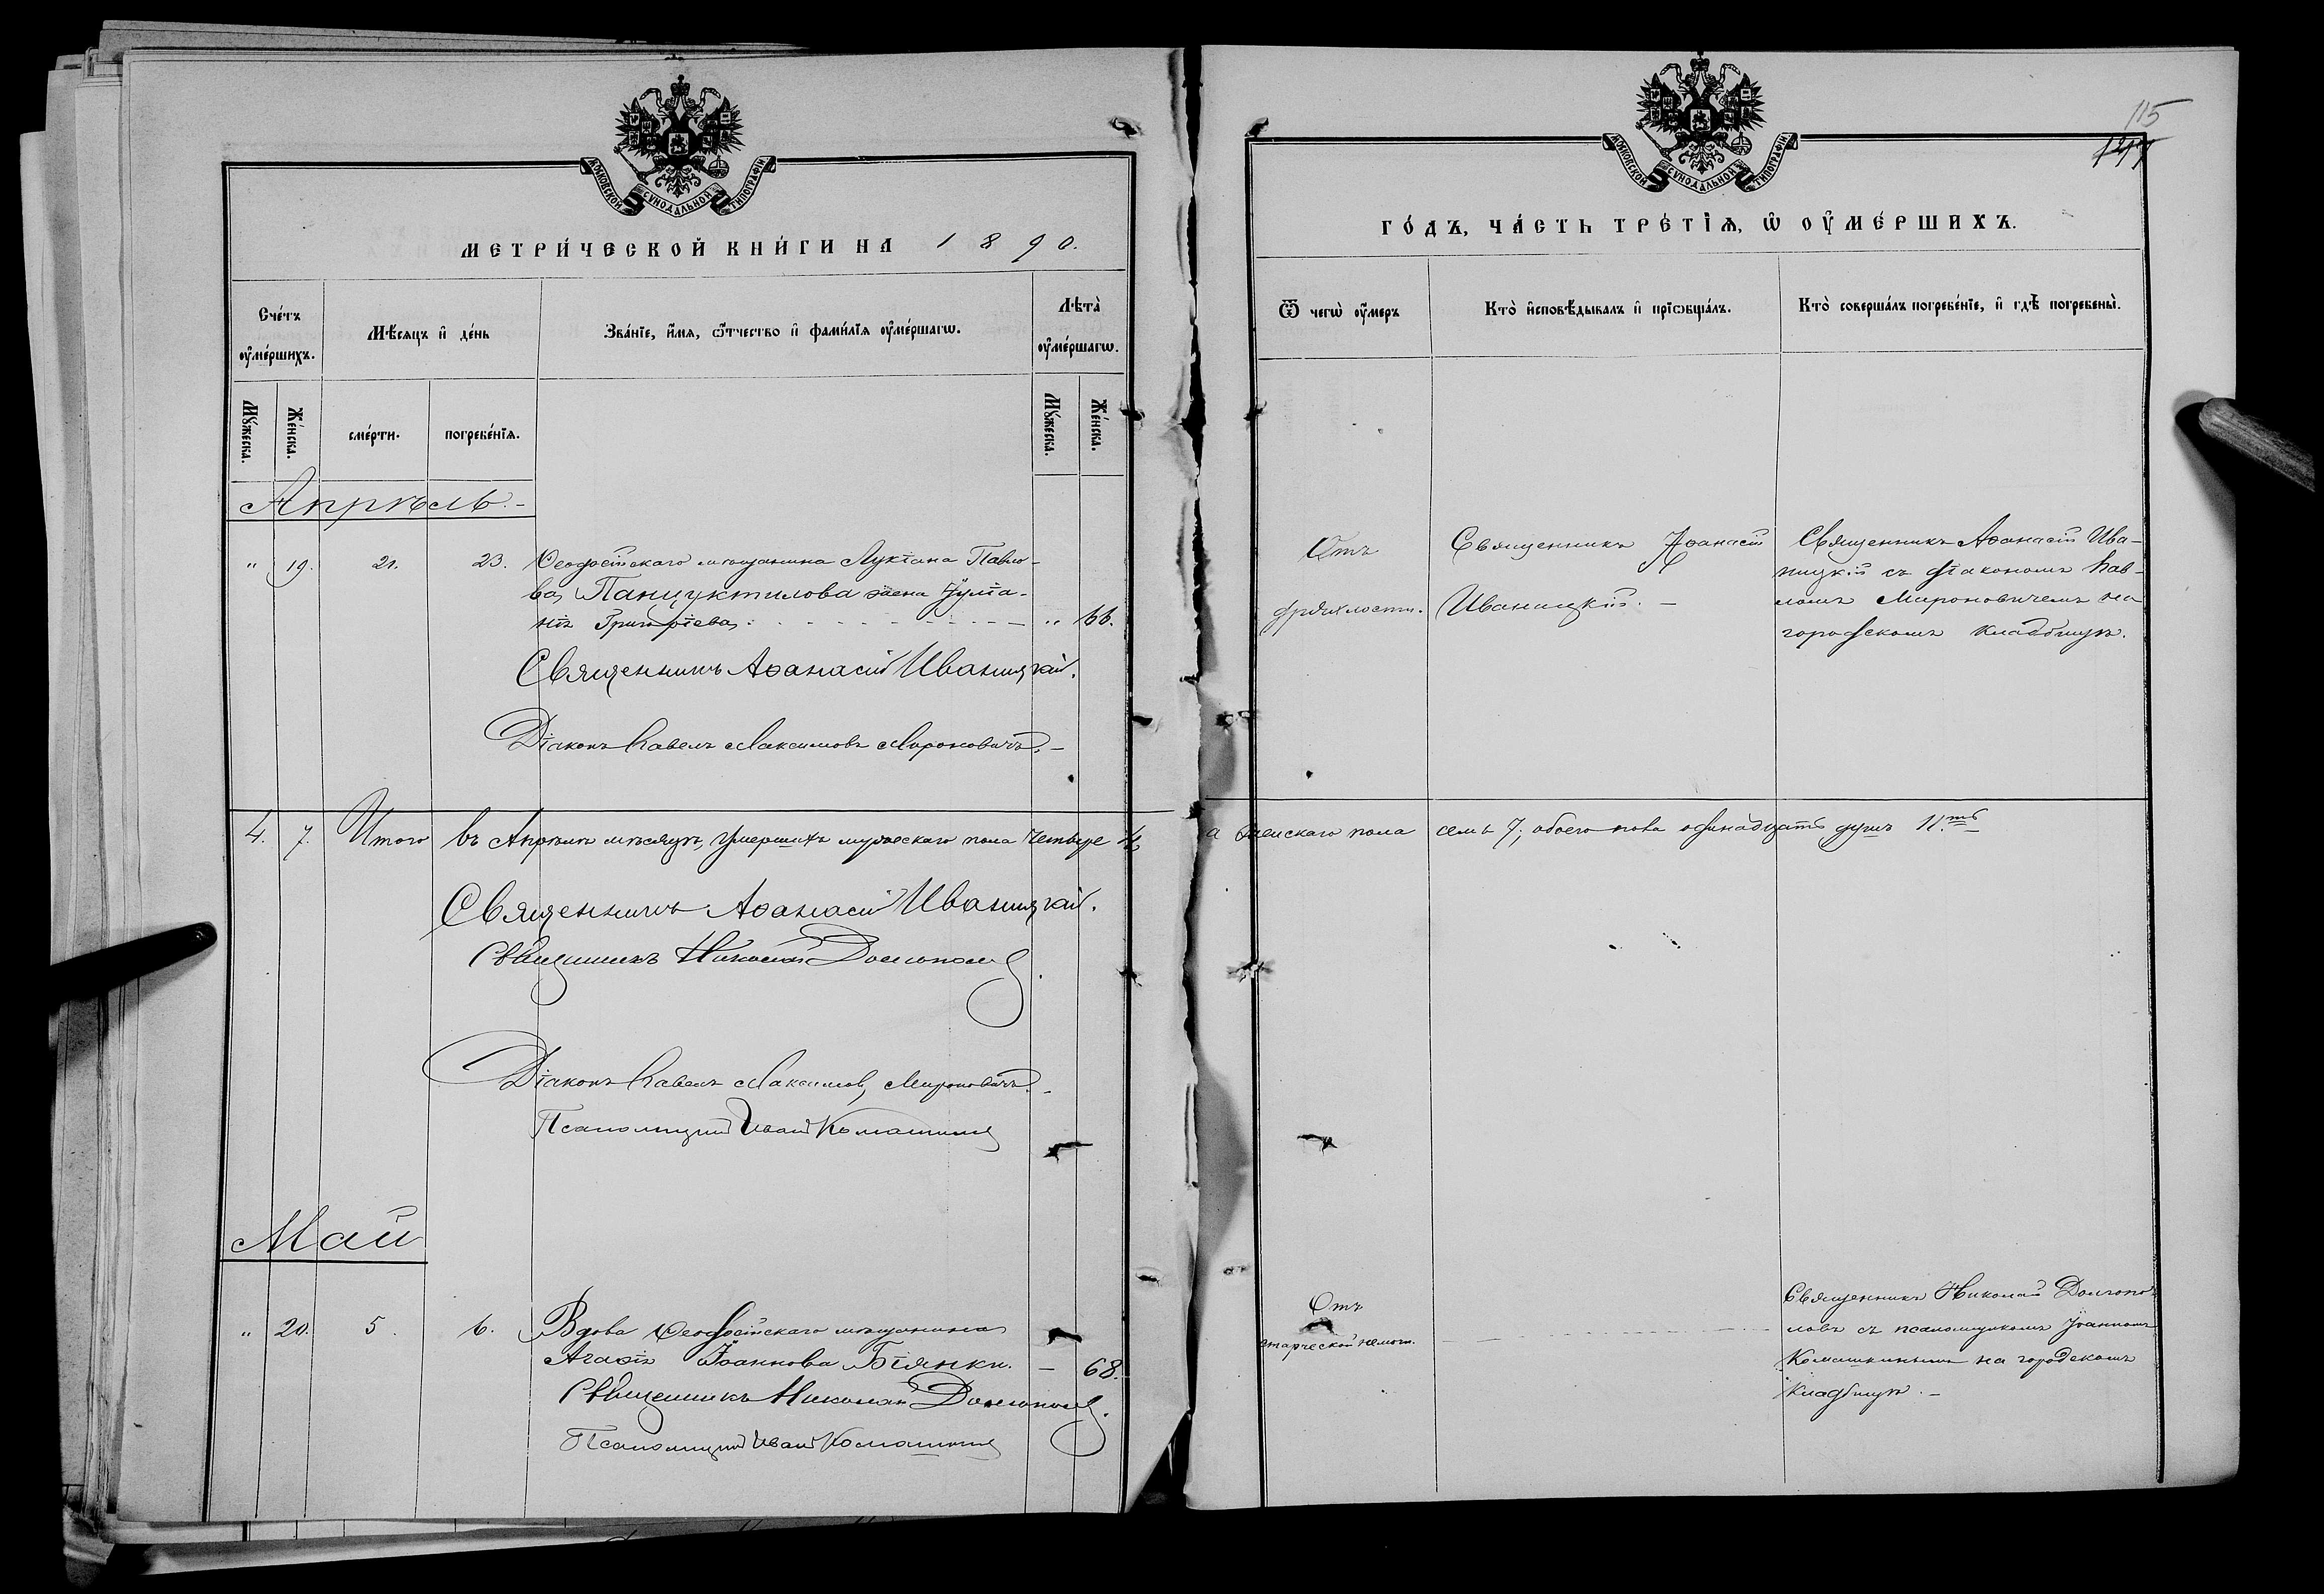 МОСКОВСКОЙ СѴНОДАЛЬНОЙ ТИПОГРАФІИ
МЕТРИ́ЧЕСКОЙ КНИ́ГИ НА 1890.
Сче́тъ оу҆ме́ршихъ.
Мѣ́сяцъ и҆ де́нь
Зва́нїе, и҆́мя, ѻ҆́тчество и҆ фами́лїя оу҆ме́ршагѡ.
Лѣта̀ оу҆ме́ршагѡ.
Мꙋ́жеска.
Же́нска.
сме́рти.
погребе́нїѧ.
Мꙋ́жеска.
Же́нска.
Апрѣль.-
" 19. 21. 23. Ѳеодосійскаго мѣщанина Лукіана Павло-
ва Панцуктилова жена Іуліа-
нія Григоріева. " 66.
Священникъ Аѳанасій Иваницкій.
Діаконъ Павелъ Максимовъ Мироновичъ.-
4. 7. Итого въ Апрѣлѣ мѣсяцѣ, умершихъ мужескаго пола четыре 4,
Священникъ Аѳанасій Иваницкій.
Священникъ Николай Долгополовъ
Діаконъ Павелъ Максимовъ Мироновичъ.-
Псаломщикъ Иванъ Комашкинъ
Май
" 20. 5. 6. Вдова Ѳеодосійскаго мѣщанина
Агаѳія Іоаннова Біянки. - 68.
Священникъ Николай Долгополовъ.
Псаломщикъ Иванъ Комашкинъ
115
МОСКОВСКОЙ СѴНОДАЛЬНОЙ ТИПОГРАФІИ
ГО́ДЪ, ЧА́СТЬ ТРЕ́ТЇѦ, Ѡ҆ ОУ҆МЕ́РШИХЪ.
Ѿ чегѡ̀ оу҆́меръ
Кто̀ и҆сповѣ́дывалъ и҆ прїѡбща́лъ.
Кто̀ соверша́лъ погребе́нїе, и҆ гдѣ̀ погребены̀.
Отъ
дряхлости.
Священникъ Аѳанасій
Иваницкій.-
Священникъ Аѳанасій Ива-
ницкій съ діакономъ Пав-
ломъ Мироновичемъ на
городскомъ кладбищѣ.
а женскаго пола семь 7, обоего пола одинадцать душъ 11.ть
Отъ
старческой немощ.
Священникъ Николай Долгопо-
ловъ съ псаломщикомъ Іоанномъ
Комашкинымъ на городскомъ
кладбищѣ.-